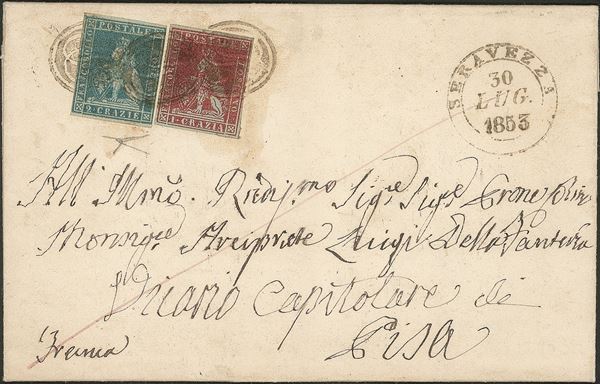 FRANCOBOLLO POSTALE TOSCANO
2 CRAZIE
FRANCOBOLLO POSTALE TOSCANO
1 CRAZIA
SERAVEZZA
30
LUG.
1853
All Illmo. Sigre Sigre
Monsigre Arciprete Luigi Della Fanteria
Vicario Capitolare di
Pisa
Franca